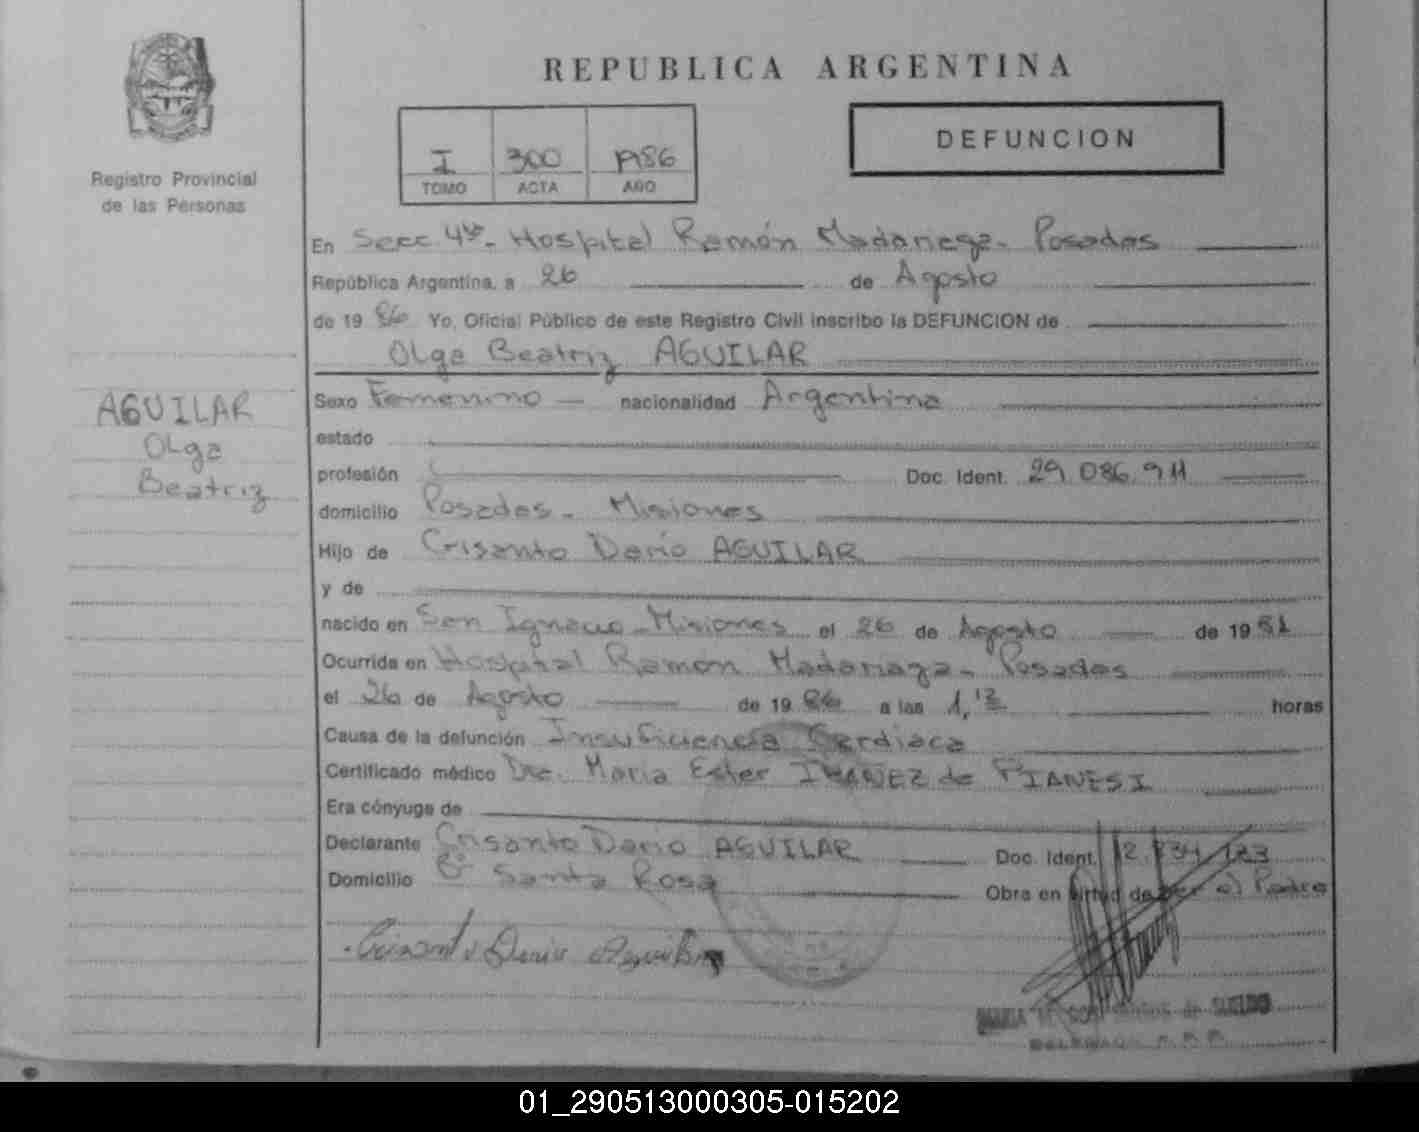 REPUBLICA ARGENTINA
Registro Provincial
de las Personas
I 300 1986
TOMO ACTA AÑO
DEFUNCION
En Secc 4ta. Hospital Ramón Madariaga - Posadas
República Argentina, a 26 de Agosto
de 19 86 Yo, Oficial Público de este Registro Civil inscribo la DEFUNCION de
Olga Beatriz AGUILAR
AGUILAR
Olga
Beatriz
Sexo Femenino nacionalidad Argentina
estado
profesión Doc. Ident. 29.086.911
domicilio Posadas - Misiones
Hijo de Crisanto Dario AGUILAR
y de
nacido en San Ignacio - Misiones el 26 de Agosto de 19 81
Ocurrida en Hospital Ramón Madariaga - Posadas
el 26 de Agosto de 19 86 a las 1, horas
Causa de la defunción Insuficiencia Cardiaca
Certificado médico Dra. Maria Ester IBAÑEZ de PIANESI
Era cónyuge de
Declarante Crisanto Dario AGUILAR Doc. Ident.
Domicilio Bº Santa Rosa Obra en virtud de ser el Padre
Crisanto Dario Aguilar
de SUELDO
01_290513000305-015202